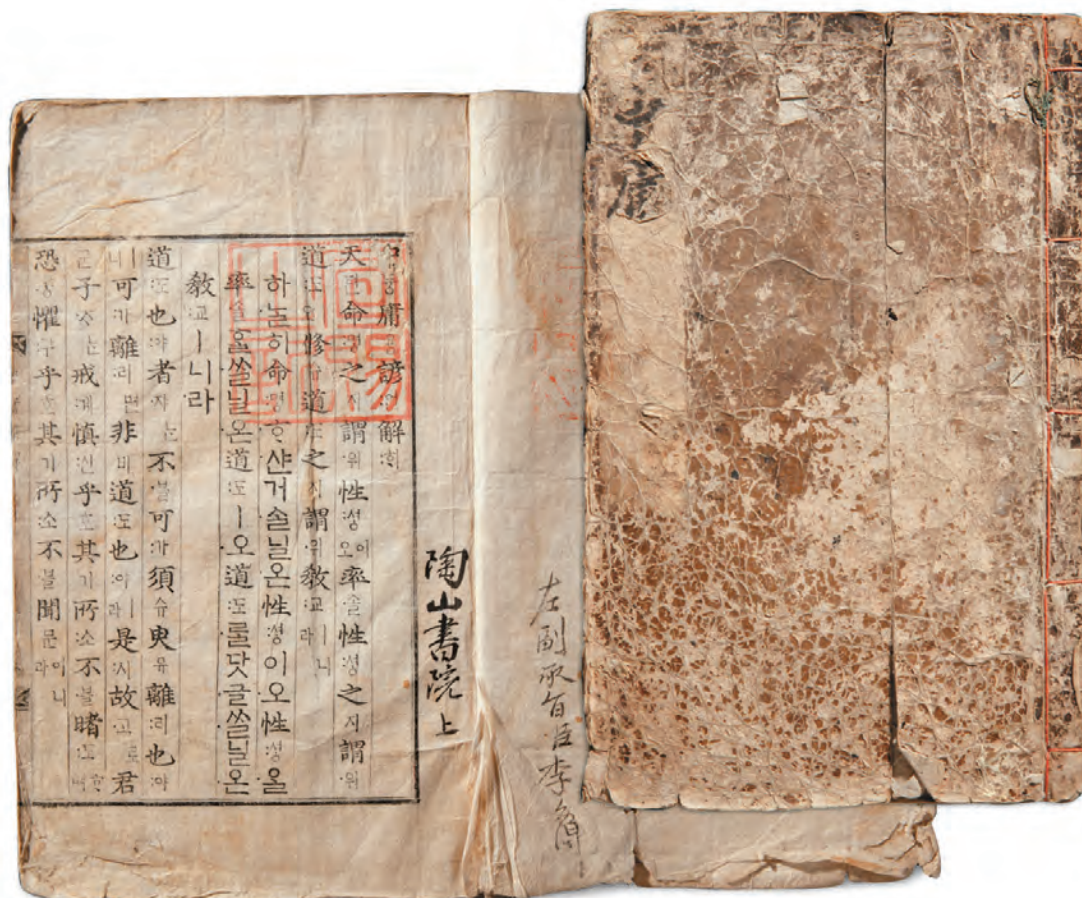 中庸
左副承旨臣李
陶山書院上
宣賜之記
中듕庸용諺언解ᄒᆡ
天텬命명之지謂위性셩이오率솔性셩之지謂위
道도ㅣ오修슈道도之지謂위敎교ㅣ니라
하ᄂᆞᆯ히命명ᄒᆞ샨거ᄉᆞᆯ닐온性셩이오性셩을
率솔ᄒᆞᆯᄊᆞᆯ닐온道도ㅣ오道도ᄅᆞᆯ닷글ᄊᆞᆯ닐온
敎교ㅣ니라
道도也야者쟈ᄂᆞᆫ不블可가須슈臾유離리也야
ㅣ니可가離리면非비道도也야ㅣ라是시故고로君
군子ᄌᆞᄂᆞᆫ戒계愼신乎호其기所소不블睹도ᄒᆞ며
恐공懼구乎호其기所소不블聞문이니라